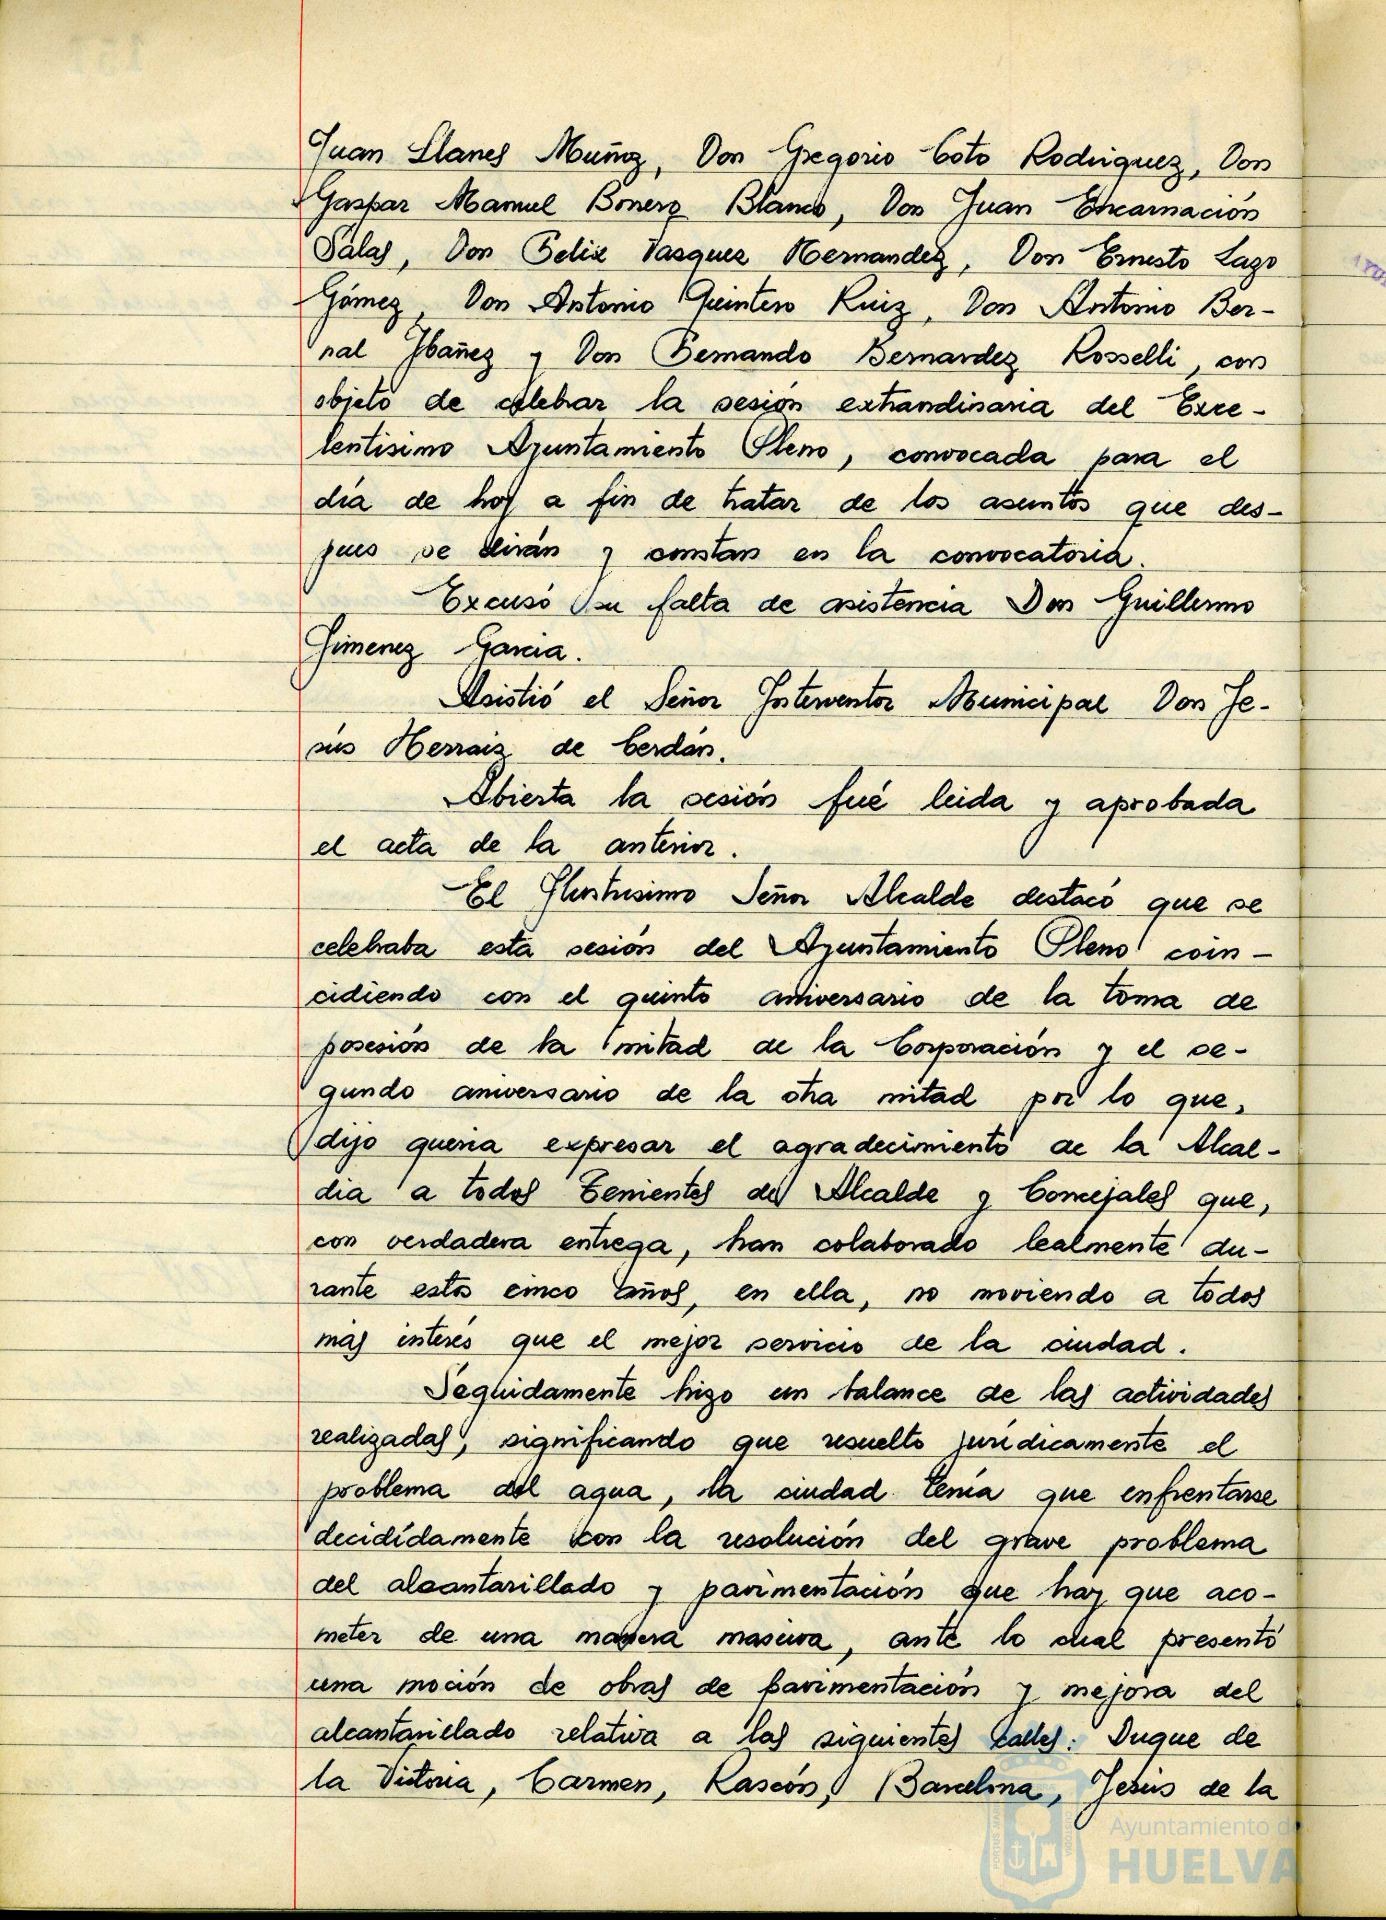 Juan Llanes Muñoz, Don Gregorio Coto Rodriguez, Don
Gaspar Manuel Bonero Blanco, Don Juan Encarnación
Salas, Don Felix Vasquez Hernandez, Don Ernesto Lazo
Gómez, Don Antonio Quintero Ruiz, Don Antonio Ber-
nal Ibañez y Don Fernando Bernardez Rosselli, con
objeto de celebrar la sesión extraordinaria del Exce-
lentisimo Ayuntamiento Pleno, convocada para el
día de hoy a fin de tratar de los asuntos que des-
pues se dirán y constan en la convocatoria.
Excusó su falta de asistencia Don Guillermo
Jimenez Garcia.
Asistió el Señor Interventor Municipal Don Je-
sús Herraiz de Cerdán.
Abierta la sesión fué leida y aprobada
el acta de la anterior.
El Ilustrisimo Señor Alcalde destacó que se
celebraba esta sesión del Ayuntamiento Pleno coin-
cidiendo con el quinto aniversario de la toma de
posesión de la mitad de la Corporación y el se-
gundo aniversario de la otra mitad por lo que,
dijo queria expresar el agradecimiento de la Alcal-
dia a todos Tenientes de Alcalde y Concejales que,
con verdadera entrega, han colaborado lealmente du-
rante estos cinco años, en ella, no moviendo a todos
más interés que el mejor servicio de la ciudad.
Seguidamente hizo un balance de las actividades
realizadas, significando que resuelto jurídicamente el
problema del agua, la ciudad tenía que enfrentarse
decidídamente con la resolución del grave problema
del alcantarillado y pavimentación que hay que aco-
meter de una manera masiva, ante lo cual presentó
una moción de obras de pavimentación y mejora del
alcantarillado relativa a las siguientes calles: Duque de
la Victoria, Carmen, Rascón, Barcelona, Jesús de la
Ayuntamiento de
HUELVA